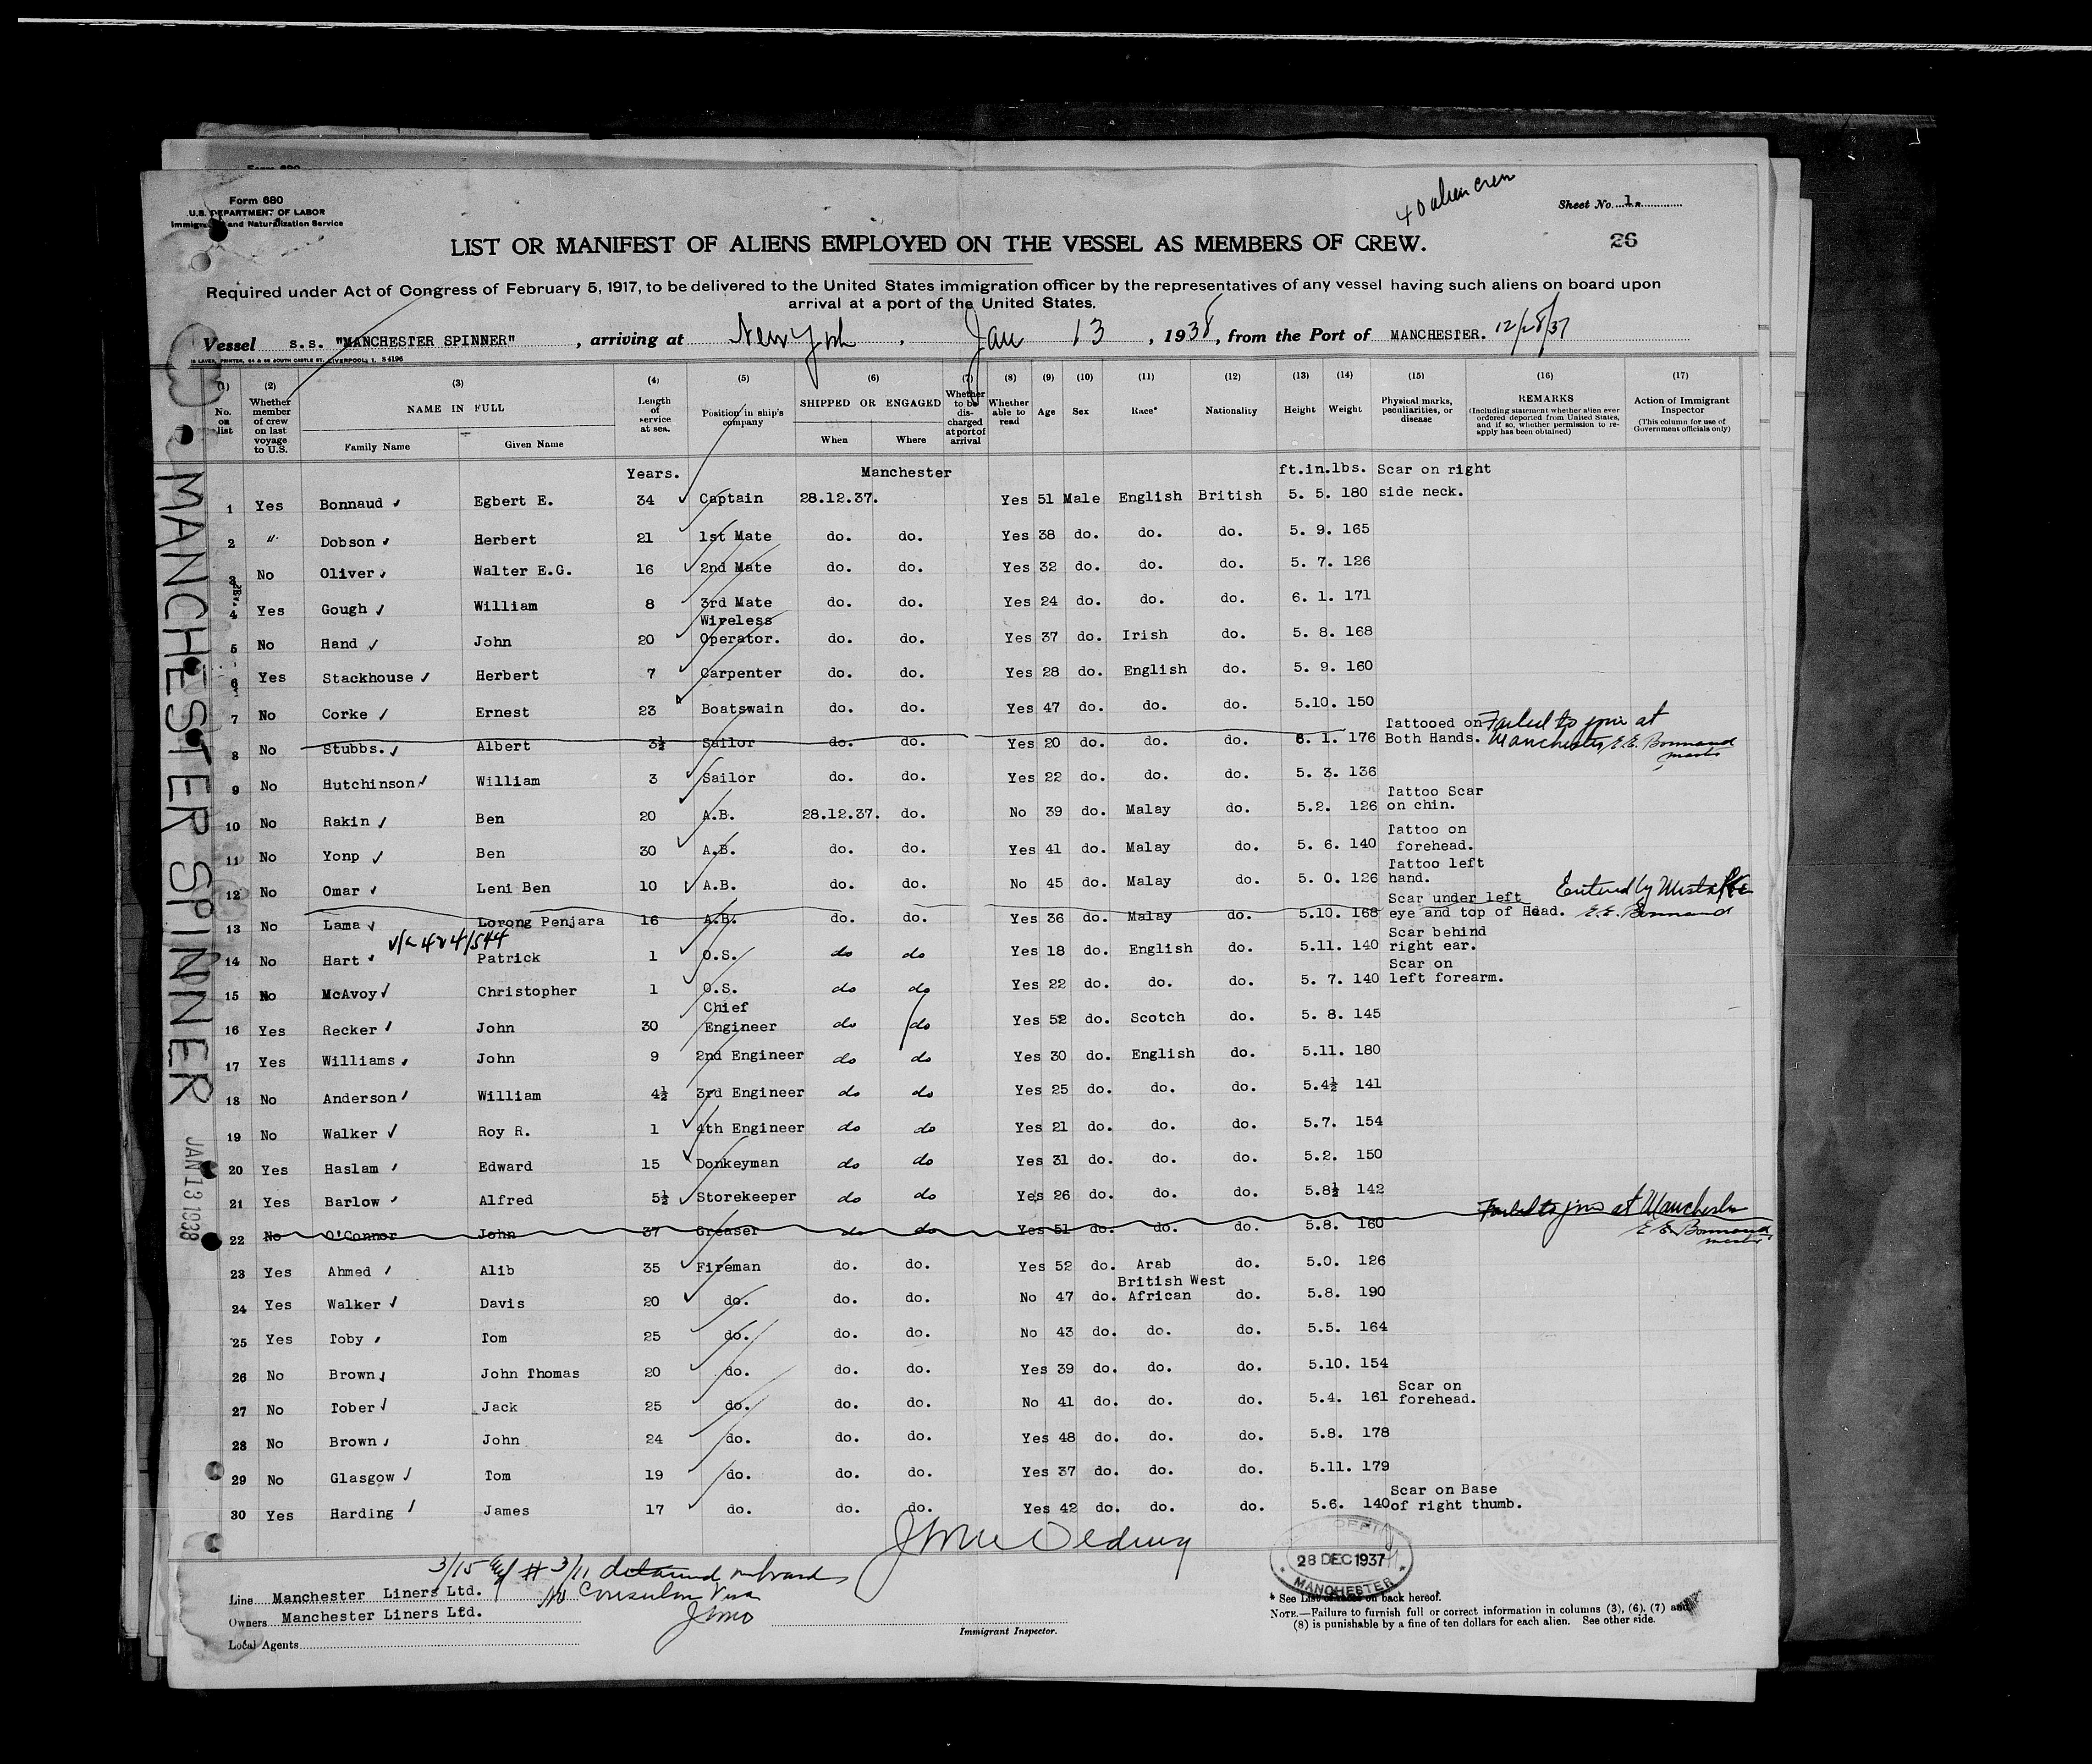 Form 680
U.S. DEPARTMENT OF LABOR
Immigration and Naturalization Service
40 alien crew
Sheet No. 1.
26
LIST OR MANIFEST OF ALIENS EMPLOYED ON THE VESSEL AS MEMBERS OF CREW.
Required under Act of Congress of February 5, 1917, to be delivered to the United States immigration officer by the representatives of any vessel having such aliens on board upon
arrival at a port of the United States.
Vessel s.s. "MANCHESTER SPINNER", arriving at New York, Jan 13, 1938, from the Port of MANCHESTER. 12/28/37
(1) No. on list (2) Whether member of crew on last voyage to U.S. (3) NAME IN FULL Family Name Given Name (4) Length of service at sea. (5) Position in ship's company (6) SHIPPED OR ENGAGED When Where (7) Whether to be discharged at port of arrival (8) Whether able to read (9) Age (10) Sex (11) Race* (12) Nationality (13) Height (14) Weight (15) Physical marks, peculiarities, or disease (16) REMARKS (Including statement whether alien ever ordered deported from United States, and if so, whether permission to re-apply has been obtained) (17) Action of Immigrant Inspector (This column for use of Government officials only)
Years. Manchester ft.in.lbs. Scar on right
1 Yes Bonnaud Egbert E. 34 Captain 28.12.37. Yes 51 Male English British 5. 5. 180 side neck.
2 " Dobson Herbert 21 1st Mate do. do. Yes 38 do. do. do. 5. 9. 165
3 No Oliver Walter E.G. 16 2nd Mate do. do. Yes 32 do. do. do. 5. 7. 126
4 Yes Gough William 8 3rd Mate do. do. Yes 24 do. do. do. 6. 1. 171
Wireless
5 No Hand John 20 Operator. do. do. Yes 37 do. Irish do. 5. 8. 168
6 Yes Stackhouse Herbert 7 Carpenter do. do. Yes 28 do. English do. 5. 9. 160
7 No Corke Ernest 23 Boatswain do. do. Yes 47 do. do. do. 5.10. 150
Tattooed on Failed to join at
8 No Stubbs. Albert 3½ Sailor do. do. Yes 20 do. do. do. 6. 1. 176 Both Hands. Manchester E.E. Bonnaud
master
9 No Hutchinson William 3 Sailor do. do. Yes 22 do. do. do. 5. 3. 136
Tattoo Scar
10 No Rakin Ben 20 A.B. 28.12.37. do. No 39 do. Malay do. 5.2. 126 on chin.
Tattoo on
11 No Yonp Ben 30 A.B. do. do. Yes 41 do. Malay do. 5. 6. 140 forehead.
Tattoo left
12 No Omar Leni Ben 10 A.B. do. do. No 45 do. Malay do. 5. 0. 126 hand. Entered by Mistake
Scar under left
13 No Lama Lorong Penjara 16 A.B. do. do. Yes 36 do. Malay do. 5.10. 168 eye and top of Head. E.E. Bonnaud
Scar behind
14 No Hart Patrick 1 O.S. do do Yes 18 do. English do. 5.11. 140 right ear.
Scar on
15 No McAvoy Christopher 1 O.S. do do Yes 22 do. do. do. 5. 7. 140 left forearm.
Chief
16 Yes Recker John 30 Engineer do do Yes 52 do. Scotch do. 5. 8. 145
17 Yes Williams John 9 2nd Engineer do do Yes 30 do. English do. 5.11. 180
18 No Anderson William 4½ 3rd Engineer do do Yes 25 do. do. do. 5.4½ 141
19 No Walker Roy R. 1 4th Engineer do do Yes 21 do. do. do. 5.7. 154
20 Yes Haslam Edward 15 Donkeyman do do Yes 31 do. do. do. 5.2. 150
21 Yes Barlow Alfred 5½ Storekeeper do do Yes 26 do. do. do. 5.8½ 142
Failed to join at Manchester
22 No O'Connor John 37 Greaser do do Yes 51 do. do. do. 5.8. 160 E.E. Bonnaud
master
23 Yes Ahmed Alib 35 Fireman do. do. Yes 52 do. Arab do. 5.0. 126
British West
24 Yes Walker Davis 20 do. do. do. No 47 do. African do. 5.8. 190
25 Yes Toby Tom 25 do. do. do. No 43 do. do. do. 5.5. 164
26 No Brown John Thomas 20 do. do. do. Yes 39 do. do. do. 5.10. 154
Scar on
27 No Tober Jack 25 do. do. do. No 41 do. do. do. 5.4. 161 forehead.
28 No Brown John 24 do. do. do. Yes 48 do. do. do. 5.8. 178
29 No Glasgow Tom 19 do. do. do. Yes 37 do. do. do. 5.11. 179
Scar on Base
30 Yes Harding James 17 do. do. do. Yes 42 do. do. do. 5.6. 140 of right thumb.
28 DEC 1937
MANCHESTER
3/15 # 3/11 detained onboard
No Consular Visa
Line Manchester Liners Ltd.
Owners Manchester Liners Ltd.
Local Agents
Immigrant Inspector.
* See List of races on back hereof.
NOTE.—Failure to furnish full or correct information in columns (3), (6), (7) and
(8) is punishable by a fine of ten dollars for each alien. See other side.
MANCHESTER SPINNER
JAN 13 1938